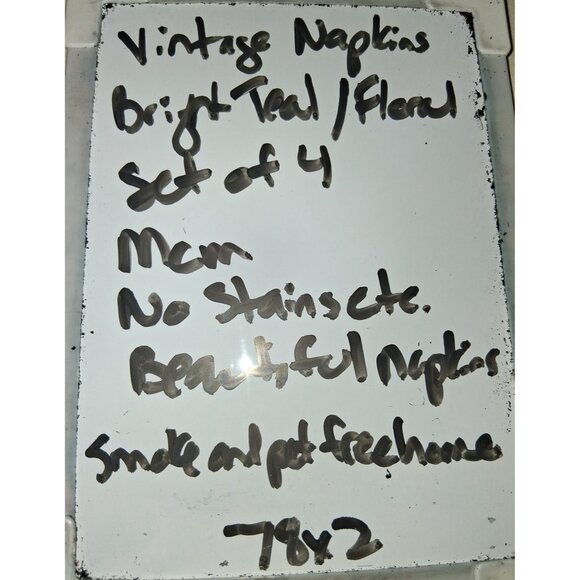 Vintage Napkins
Bright Teal / Floral
Set of 4
Mcm
No Stains etc.
Beautiful Napkins
Smoke and pet free home
78x2